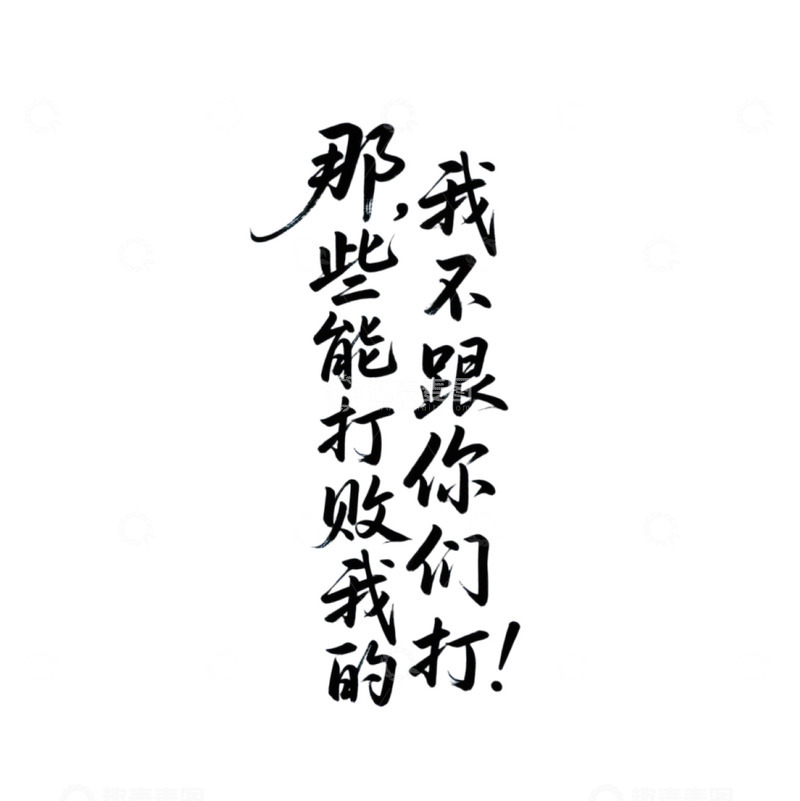 那些能打败我的,
我不跟你们打!